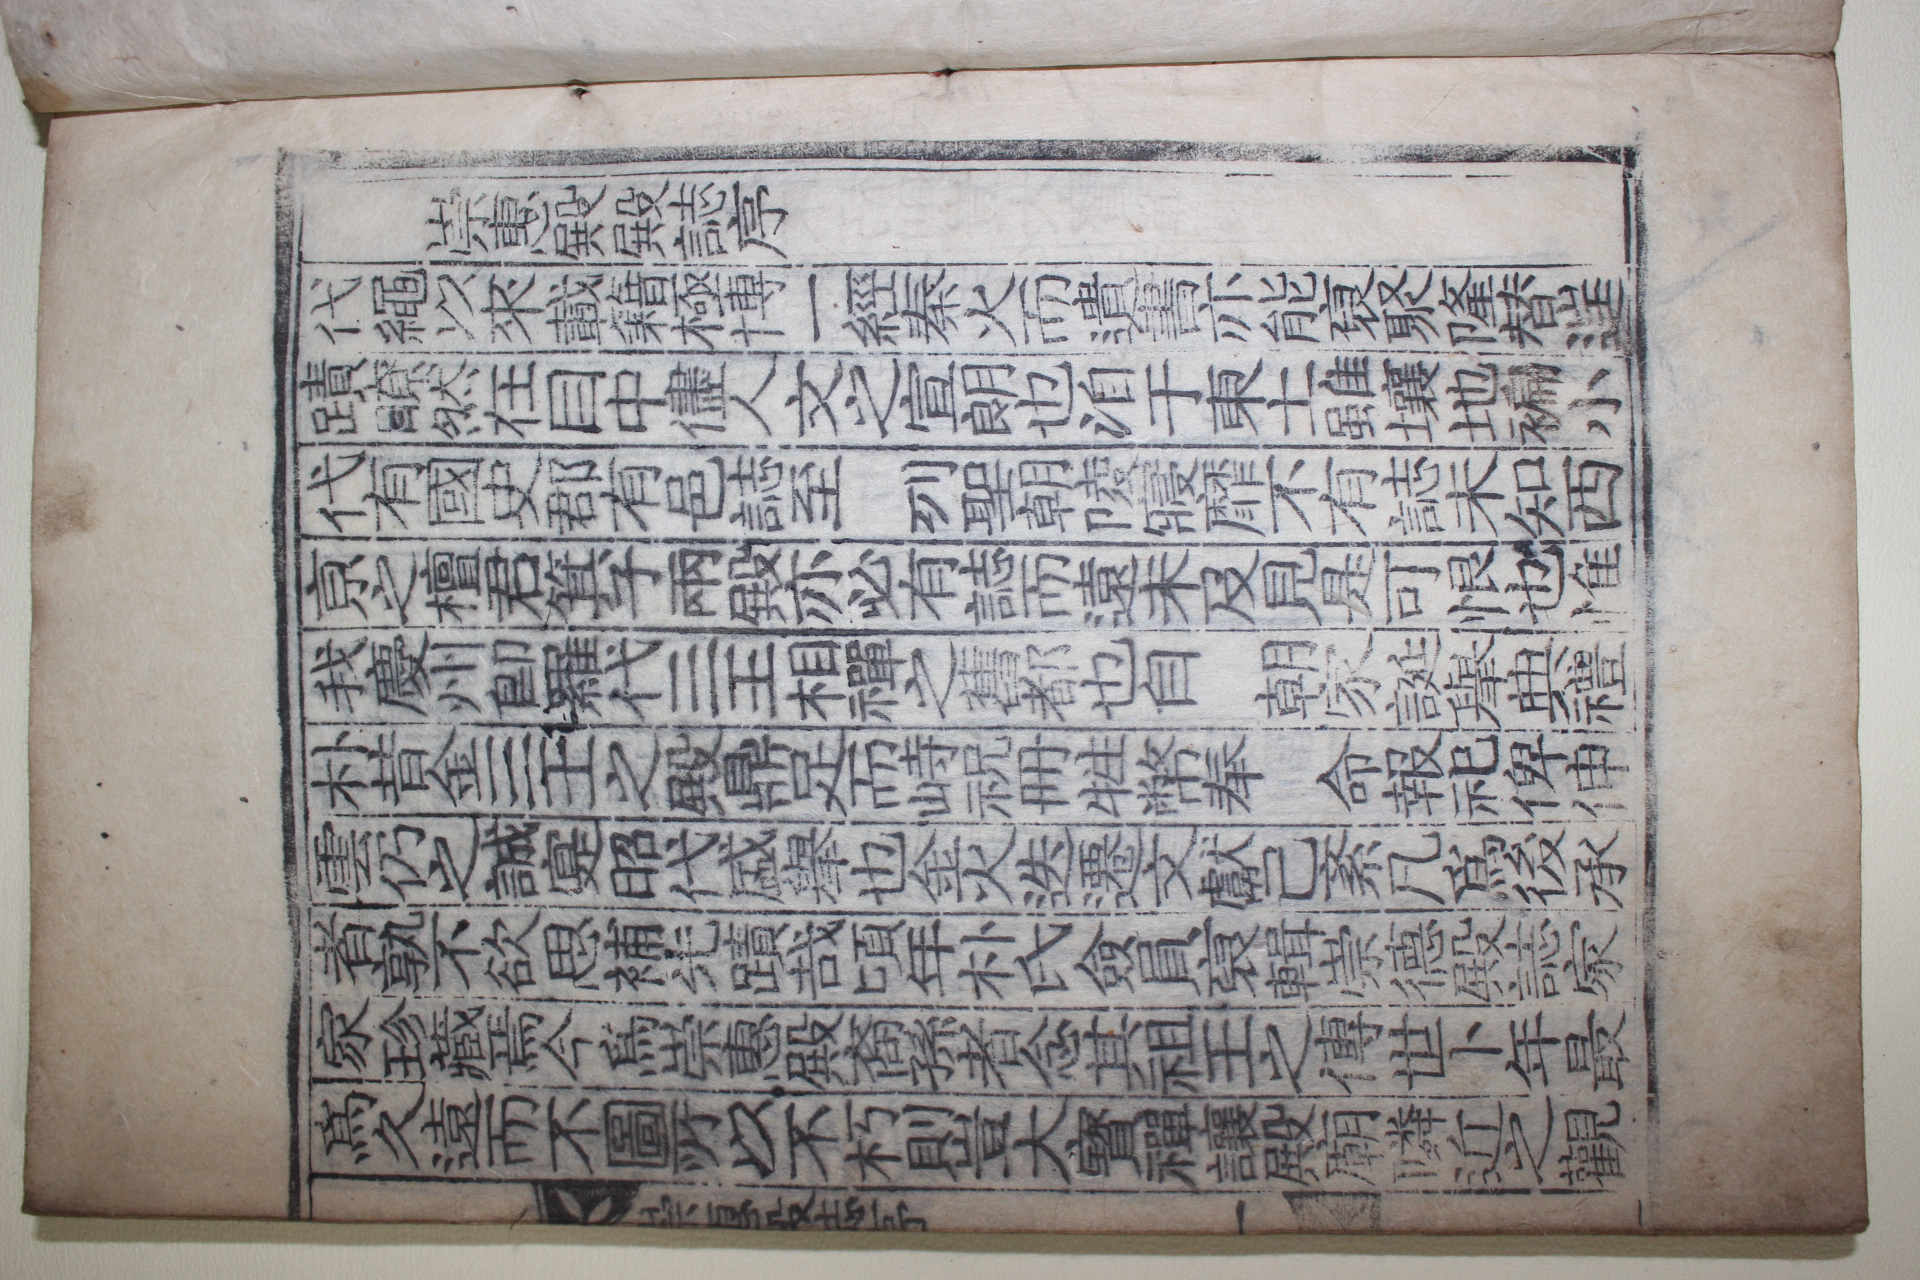 崇惠殿殿誌序
代繩以來載籍極博一經秦火而遺書亦能裒聚隆替
蹟瞭然在目中儘人文之宣朗也洎于東土雖壤地褊小
代有國史郡有邑誌至 列聖朝陵寢靡不有誌未知西
京之檀君箕子兩殿亦必有誌而遠未及見是可恨也惟
我慶州卽羅代三王相禪之舊都也自 朝家誕擧典禮
朴昔金三王之殿鼎足而峙祝冊牲幣奉 命報祀俾伸
雲仍之誠寔昭代盛擧也金火迭遷文獻已紊凡爲後承
者孰不欲思補先蹟哉頃年朴氏僉員裒輯崇德殿誌家
家珍藏焉今爲崇惠殿裔孫者念其祖王之傳世卜年最
爲久遠而不圖所以不朽則豈大寶禪讓殿廟隣近之觀
崇惠殿誌序
一